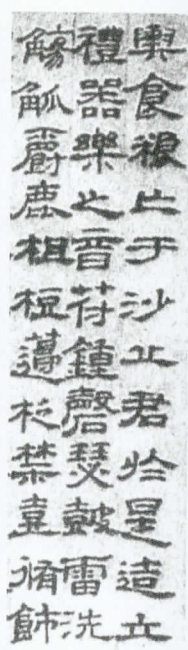 輿食粮亡于沙丘君於是造立
禮器樂之音苻鍾磬瑟皷雷洗
觴觚爵鹿柤梪籩柉禁壺脩飾